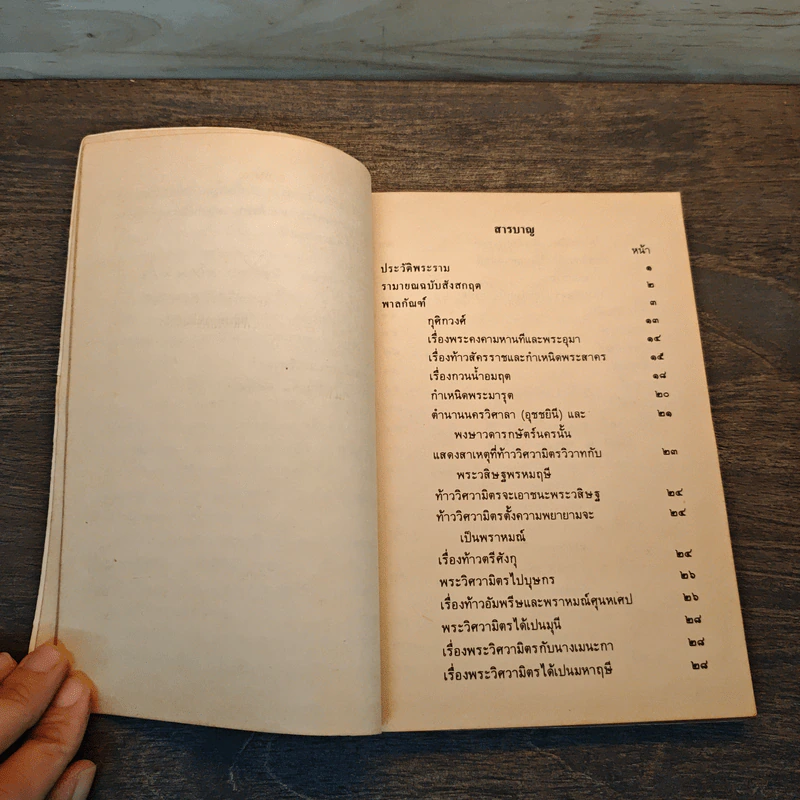 สารบาญ
หน้า
ประวัติพระราม ๑
รามายณฉบับสังสกฤต ๒
พาลกัณฑ์ ๓
กุศิกวงศ์ ๑๓
เรื่องพระคงคามหานทีและพระอุมา ๑๔
เรื่องท้าวสัครราชและกำเหนิดพระสาคร ๑๕
เรื่องกวนน้ำอมฤต ๑๘
กำเหนิดพระมารุต ๒๐
ตำนานนครวิศาลา (อุชชยินี) และ ๒๑
พงษาวดารกษัตร์นครนั้น
แสดงสาเหตุที่ท้าววิศวามิตรวิวาทกับ ๒๓
พระวสิษฐพรหมฤษี
ท้าววิศวามิตรจะเอาชนะพระวสิษฐ ๒๔
ท้าววิศวามิตรตั้งความพยายามจะ ๒๔
เป็นพราหมณ์
เรื่องท้าวตรีศังกุ ๒๕
พระวิศวามิตรไปบุษกร ๒๖
เรื่องท้าวอัมพรีษและพราหมณ์ศุนหเศป ๒๖
พระวิศวามิตรได้เปนมุนี ๒๘
เรื่องพระวิศวามิตรกับนางเมนะกา ๒๘
เรื่องพระวิศวามิตรได้เปนมหาฤษี ๒๘